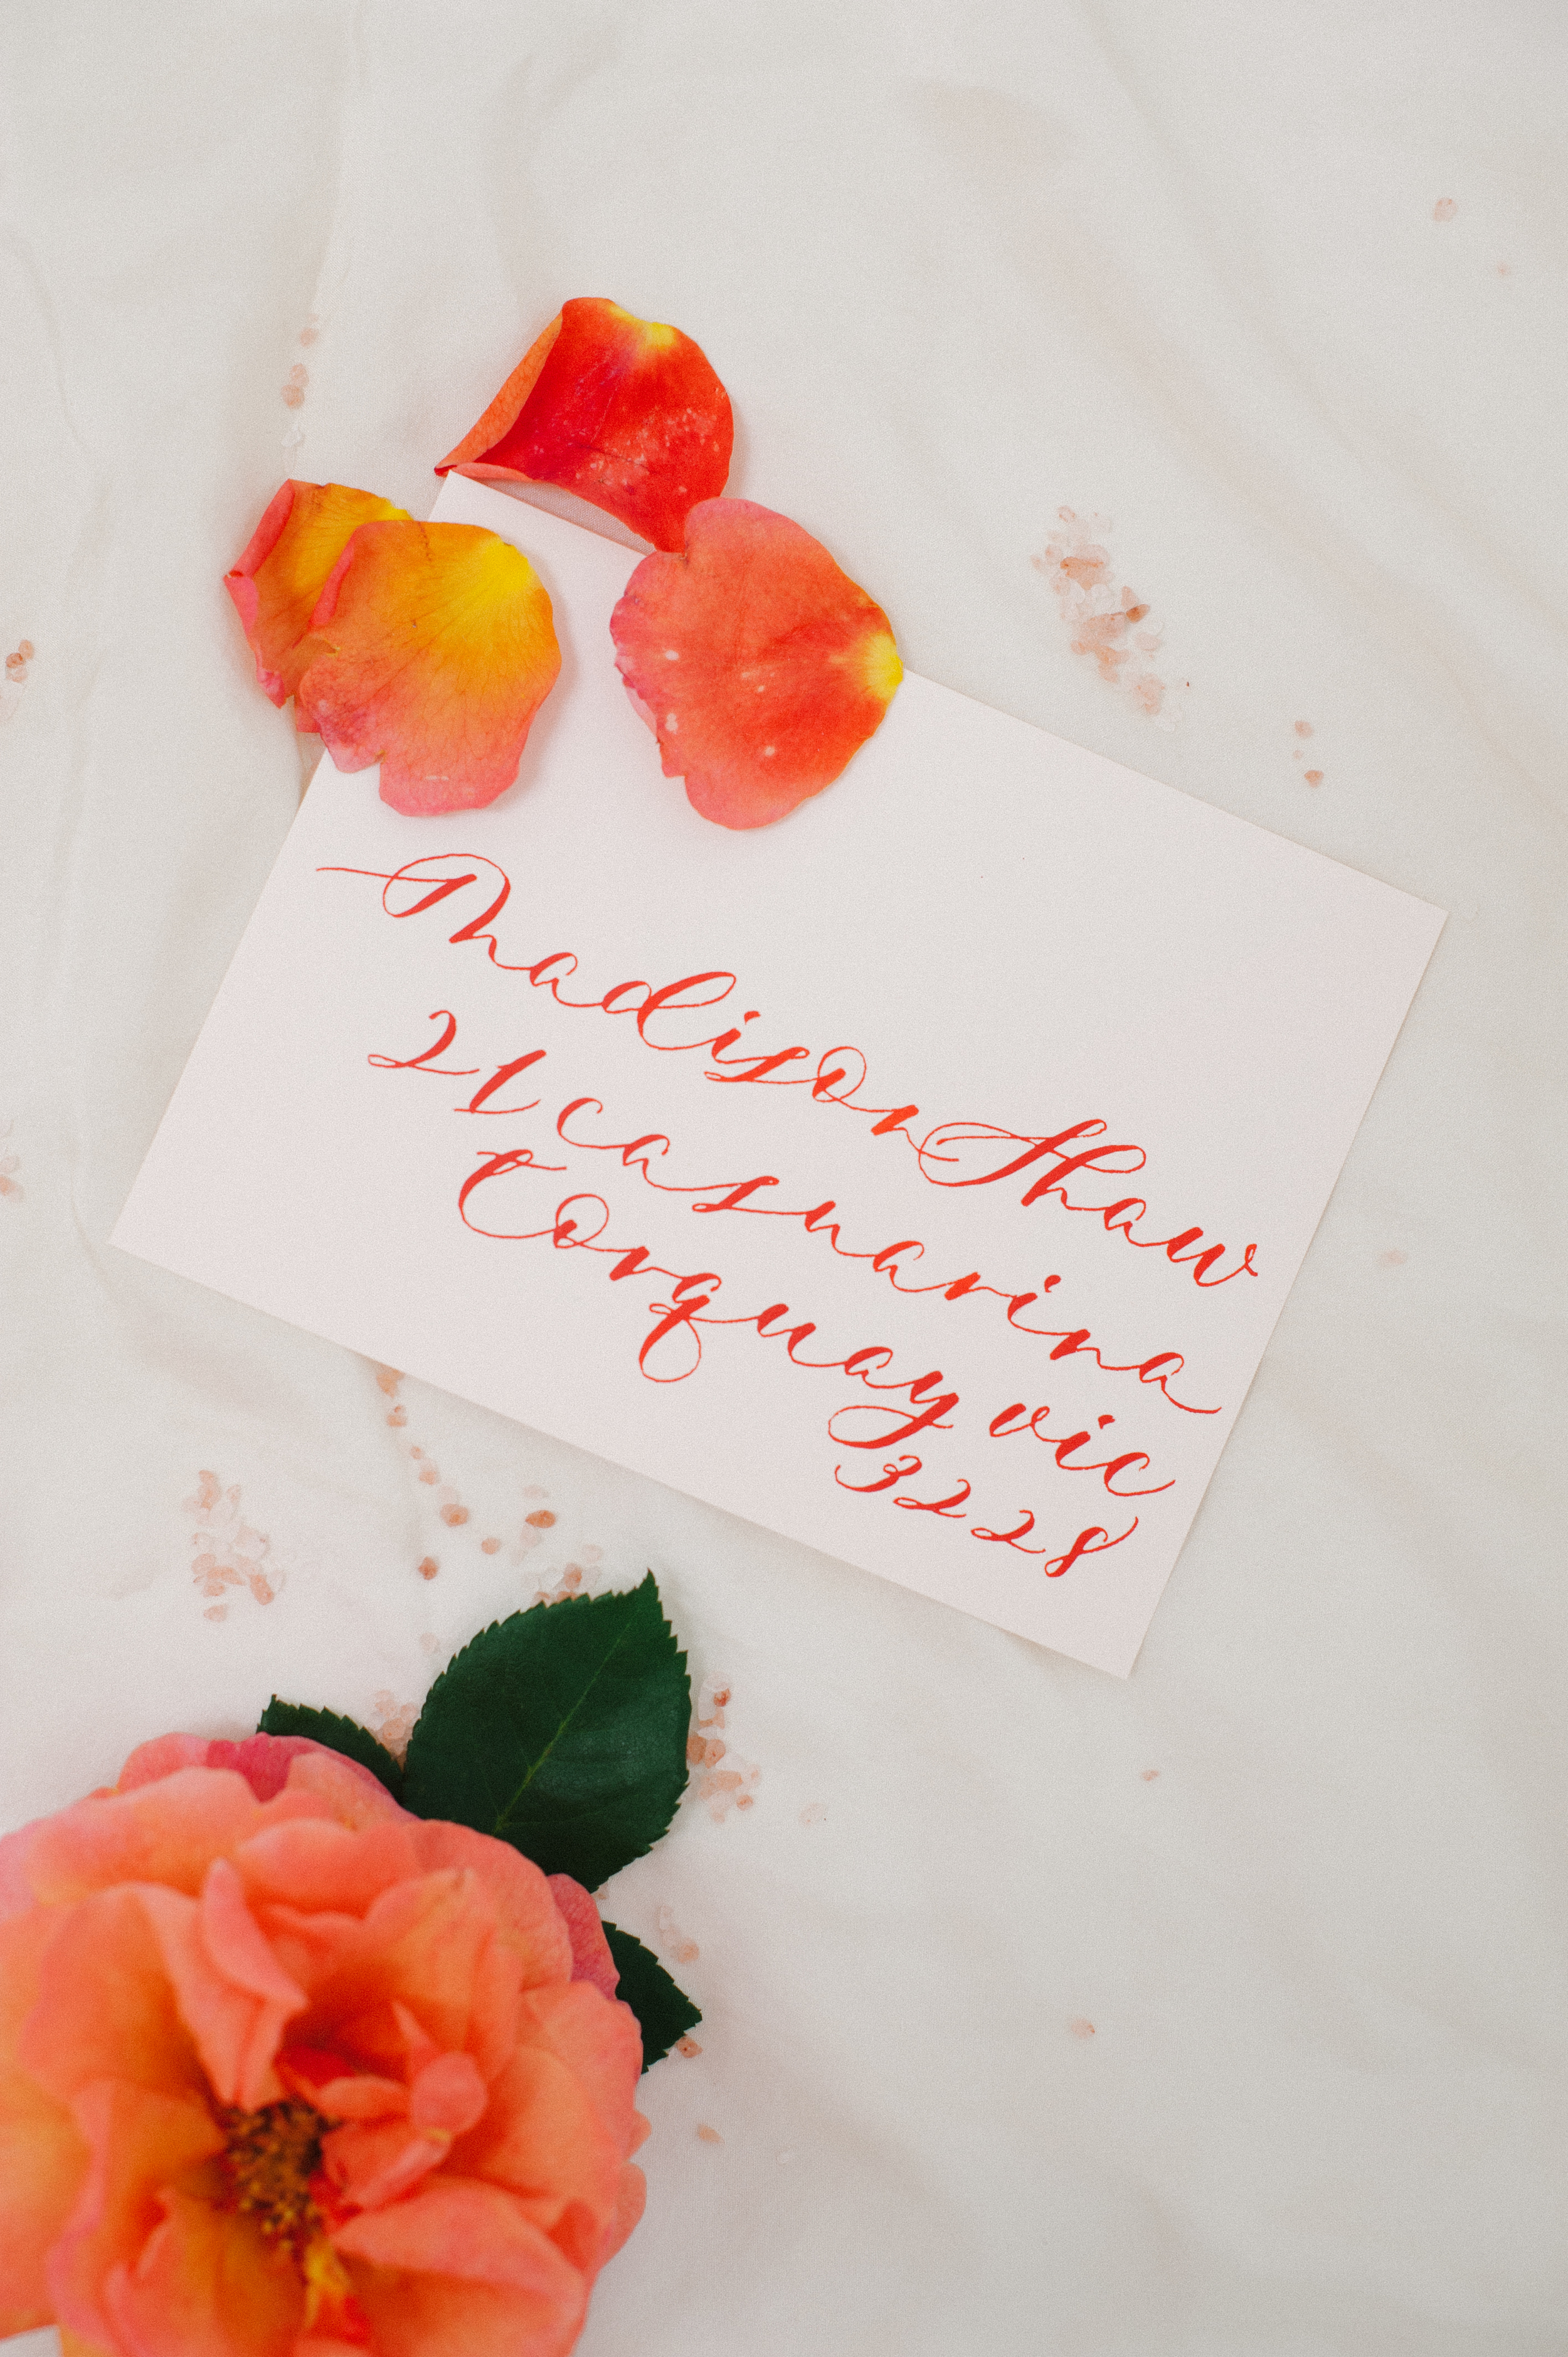 Madison Shaw
21 Casuarina
Torquay vic
3228